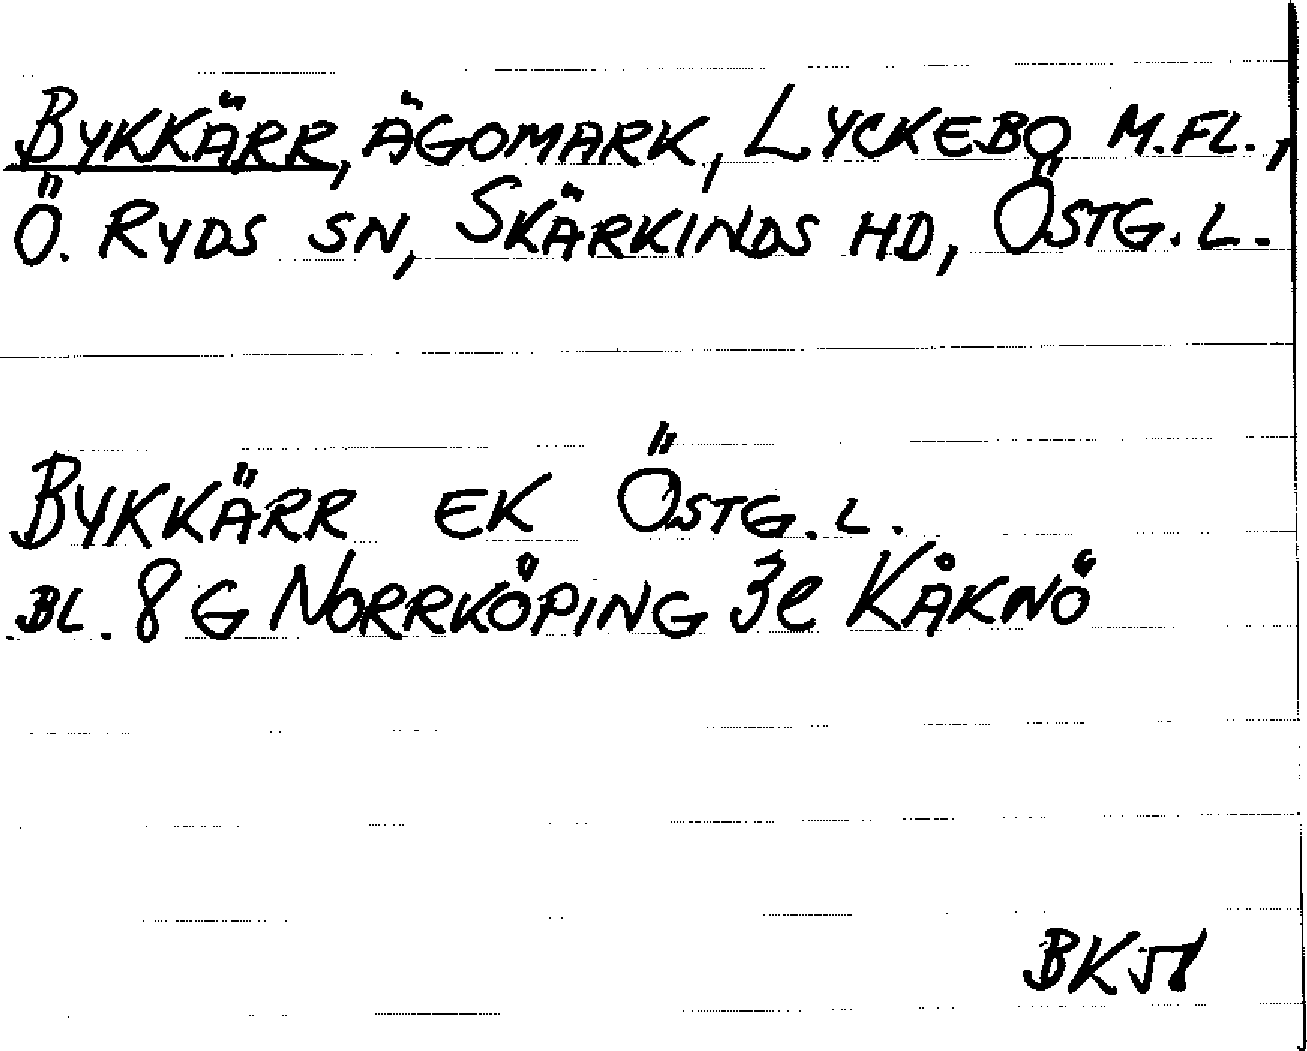 BYKKÄRR, ÄGOMARK, LYCKEBO M.FL.,
Ö. RYDS SN, SKÄRKINDS HD, ÖSTG. L.
BYKKÄRR EK ÖSTG. L.
BL. 8 G NORRKÖPING 3e KÅKNÖ